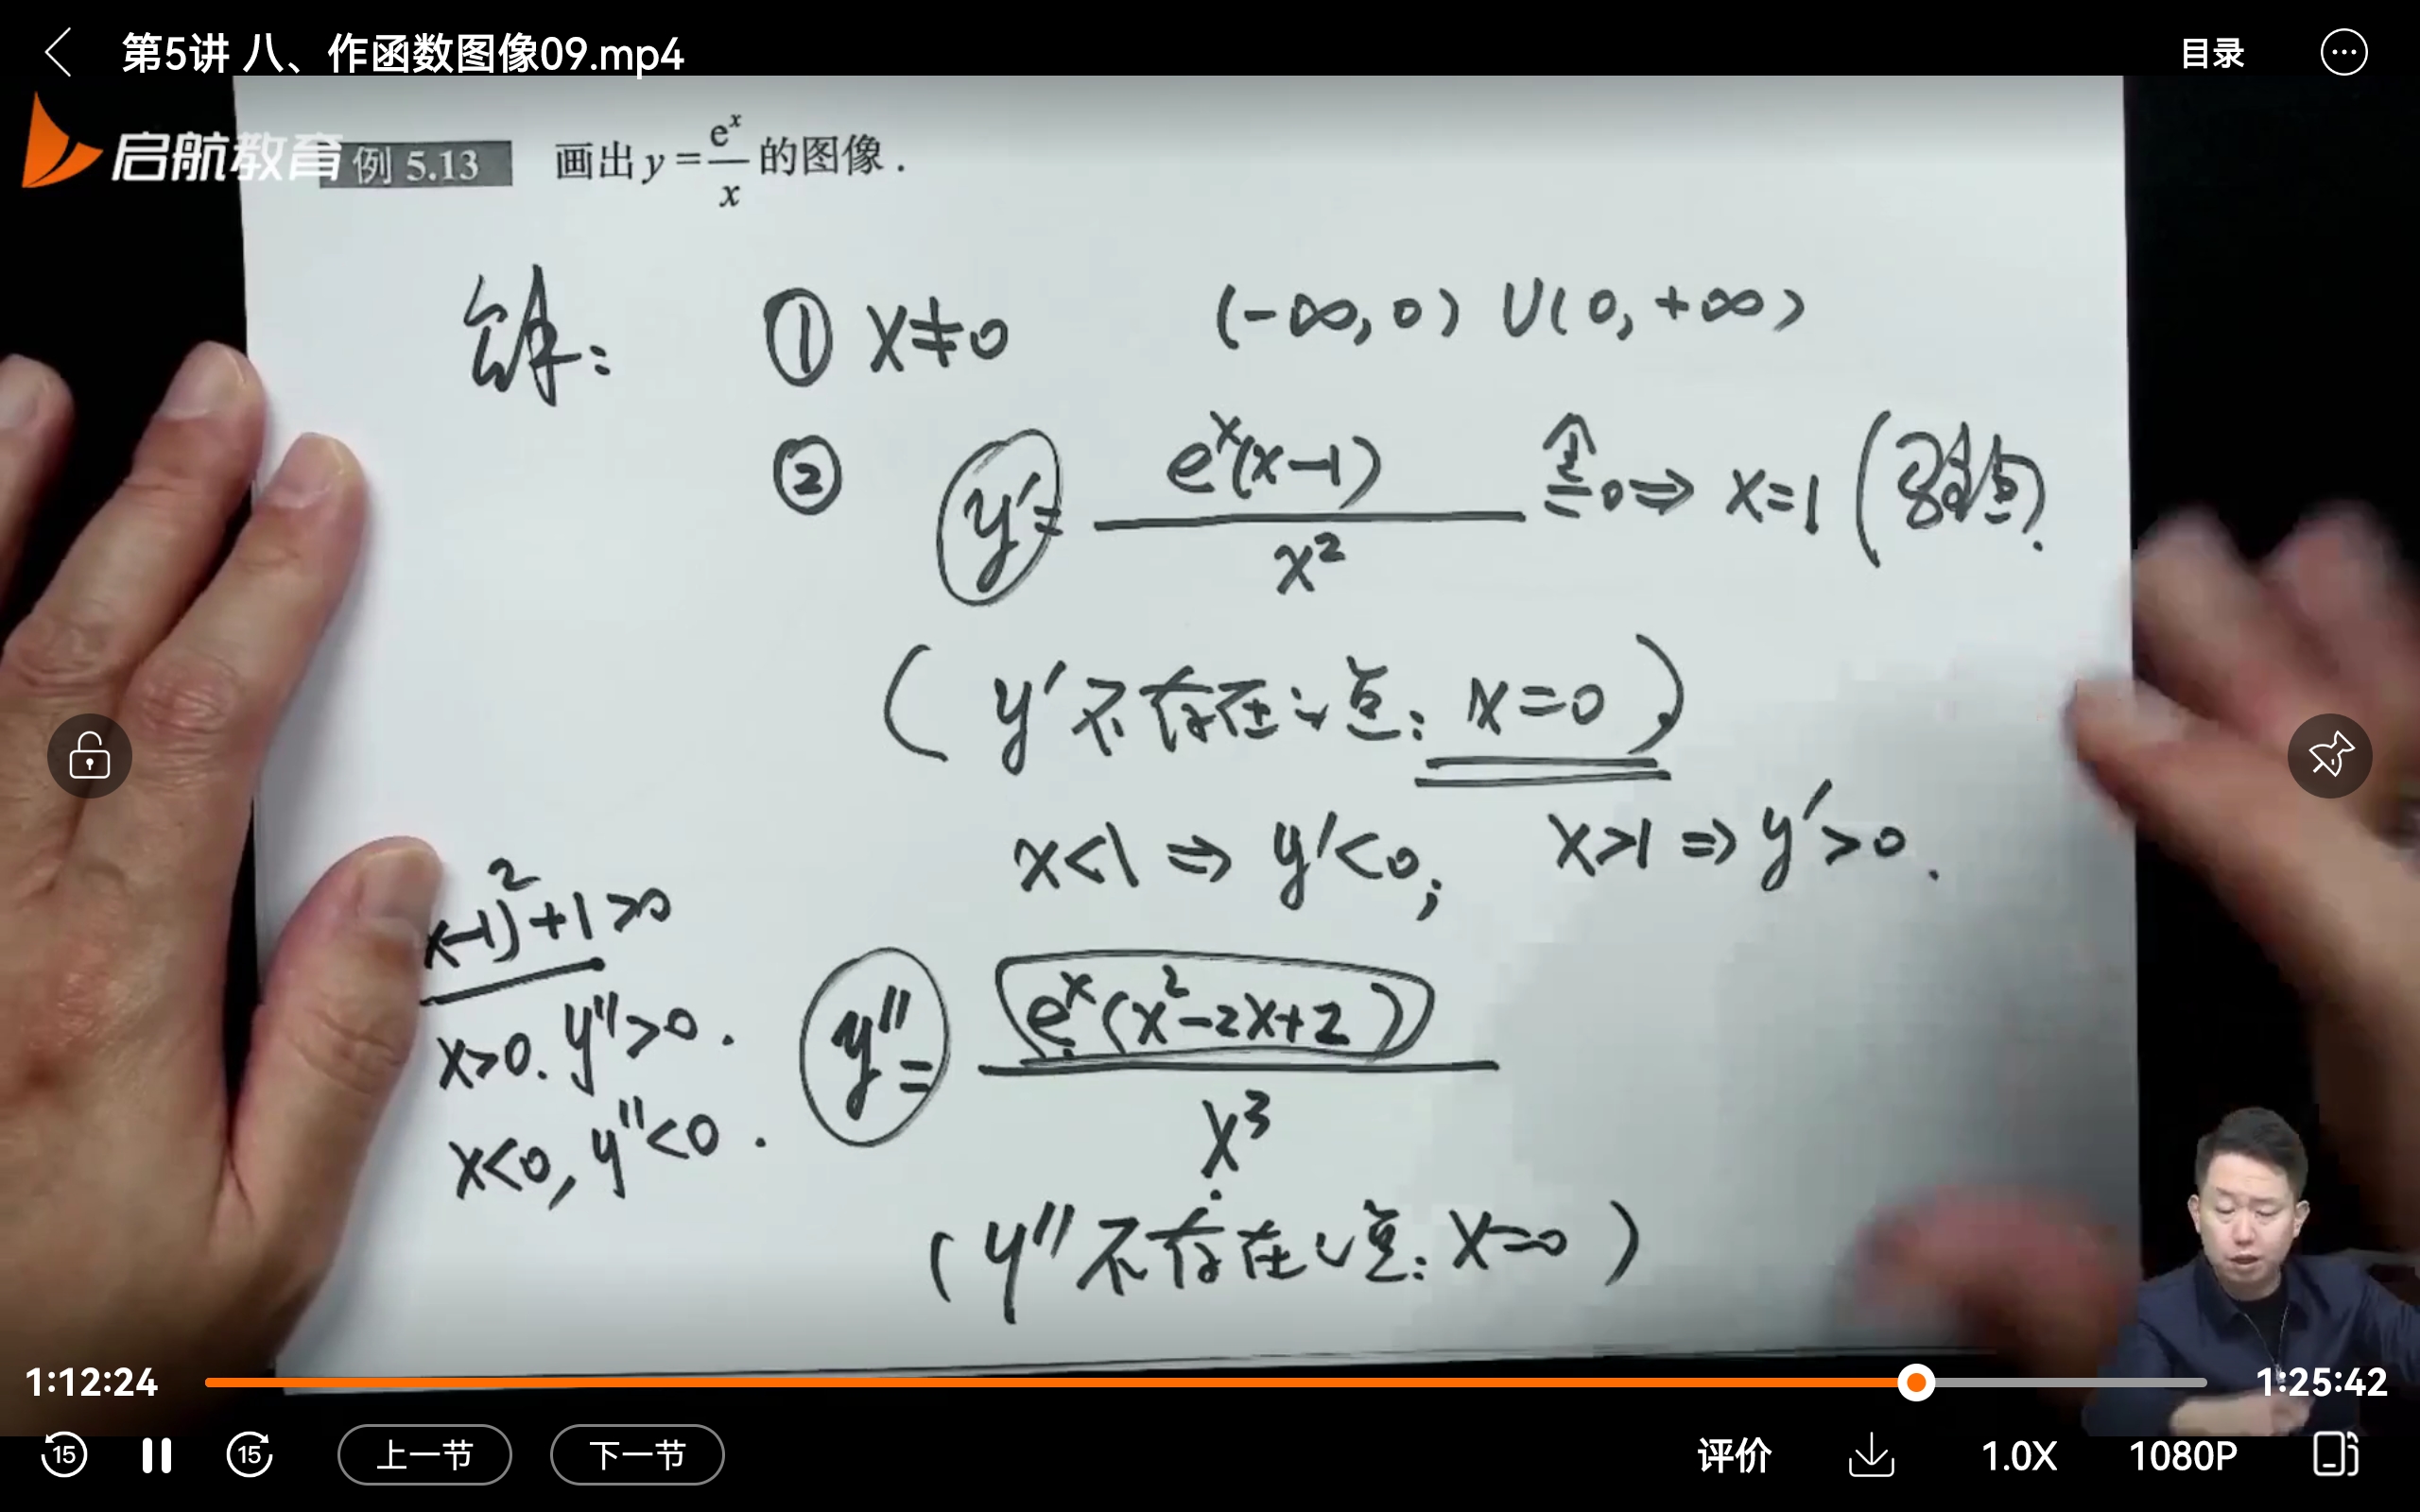 第5讲 八、作函数图像09.mp4
目录
启航教育
例 5.13 画出 y = e^x/x 的图像.
解: ① x≠0 (-∞,0) ∪ (0,+∞)
② y' = e^x(x-1)/x² 令=0 ⇒ x=1 (驻点).
( y'不存在之点: x=0 )
x<1 ⇒ y'<0; x>1 ⇒ y'>0.
x-1)²+1>0
x>0. y''>0.
x<0, y''<0.
y'' = e^x(x²-2x+2)/x³
( y''不存在之点: x=0 )
1:12:24
1:25:42
15
15
上一节
下一节
评价
1.0X
1080P